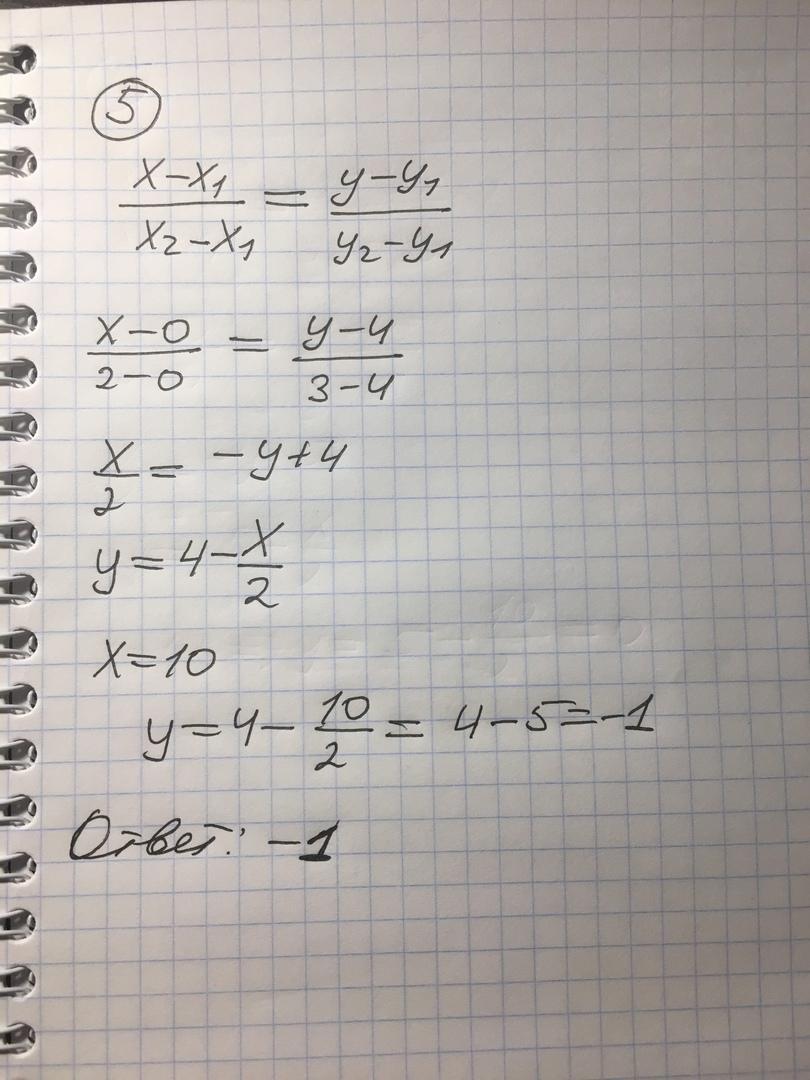 5
x-x₁/x₂-x₁ = y-y₁/y₂-y₁
x-0/2-0 = y-4/3-4
x/2 = -y+4
y=4-x/2
x=10
y=4-10/2=4-5=-1
Ответ: -1